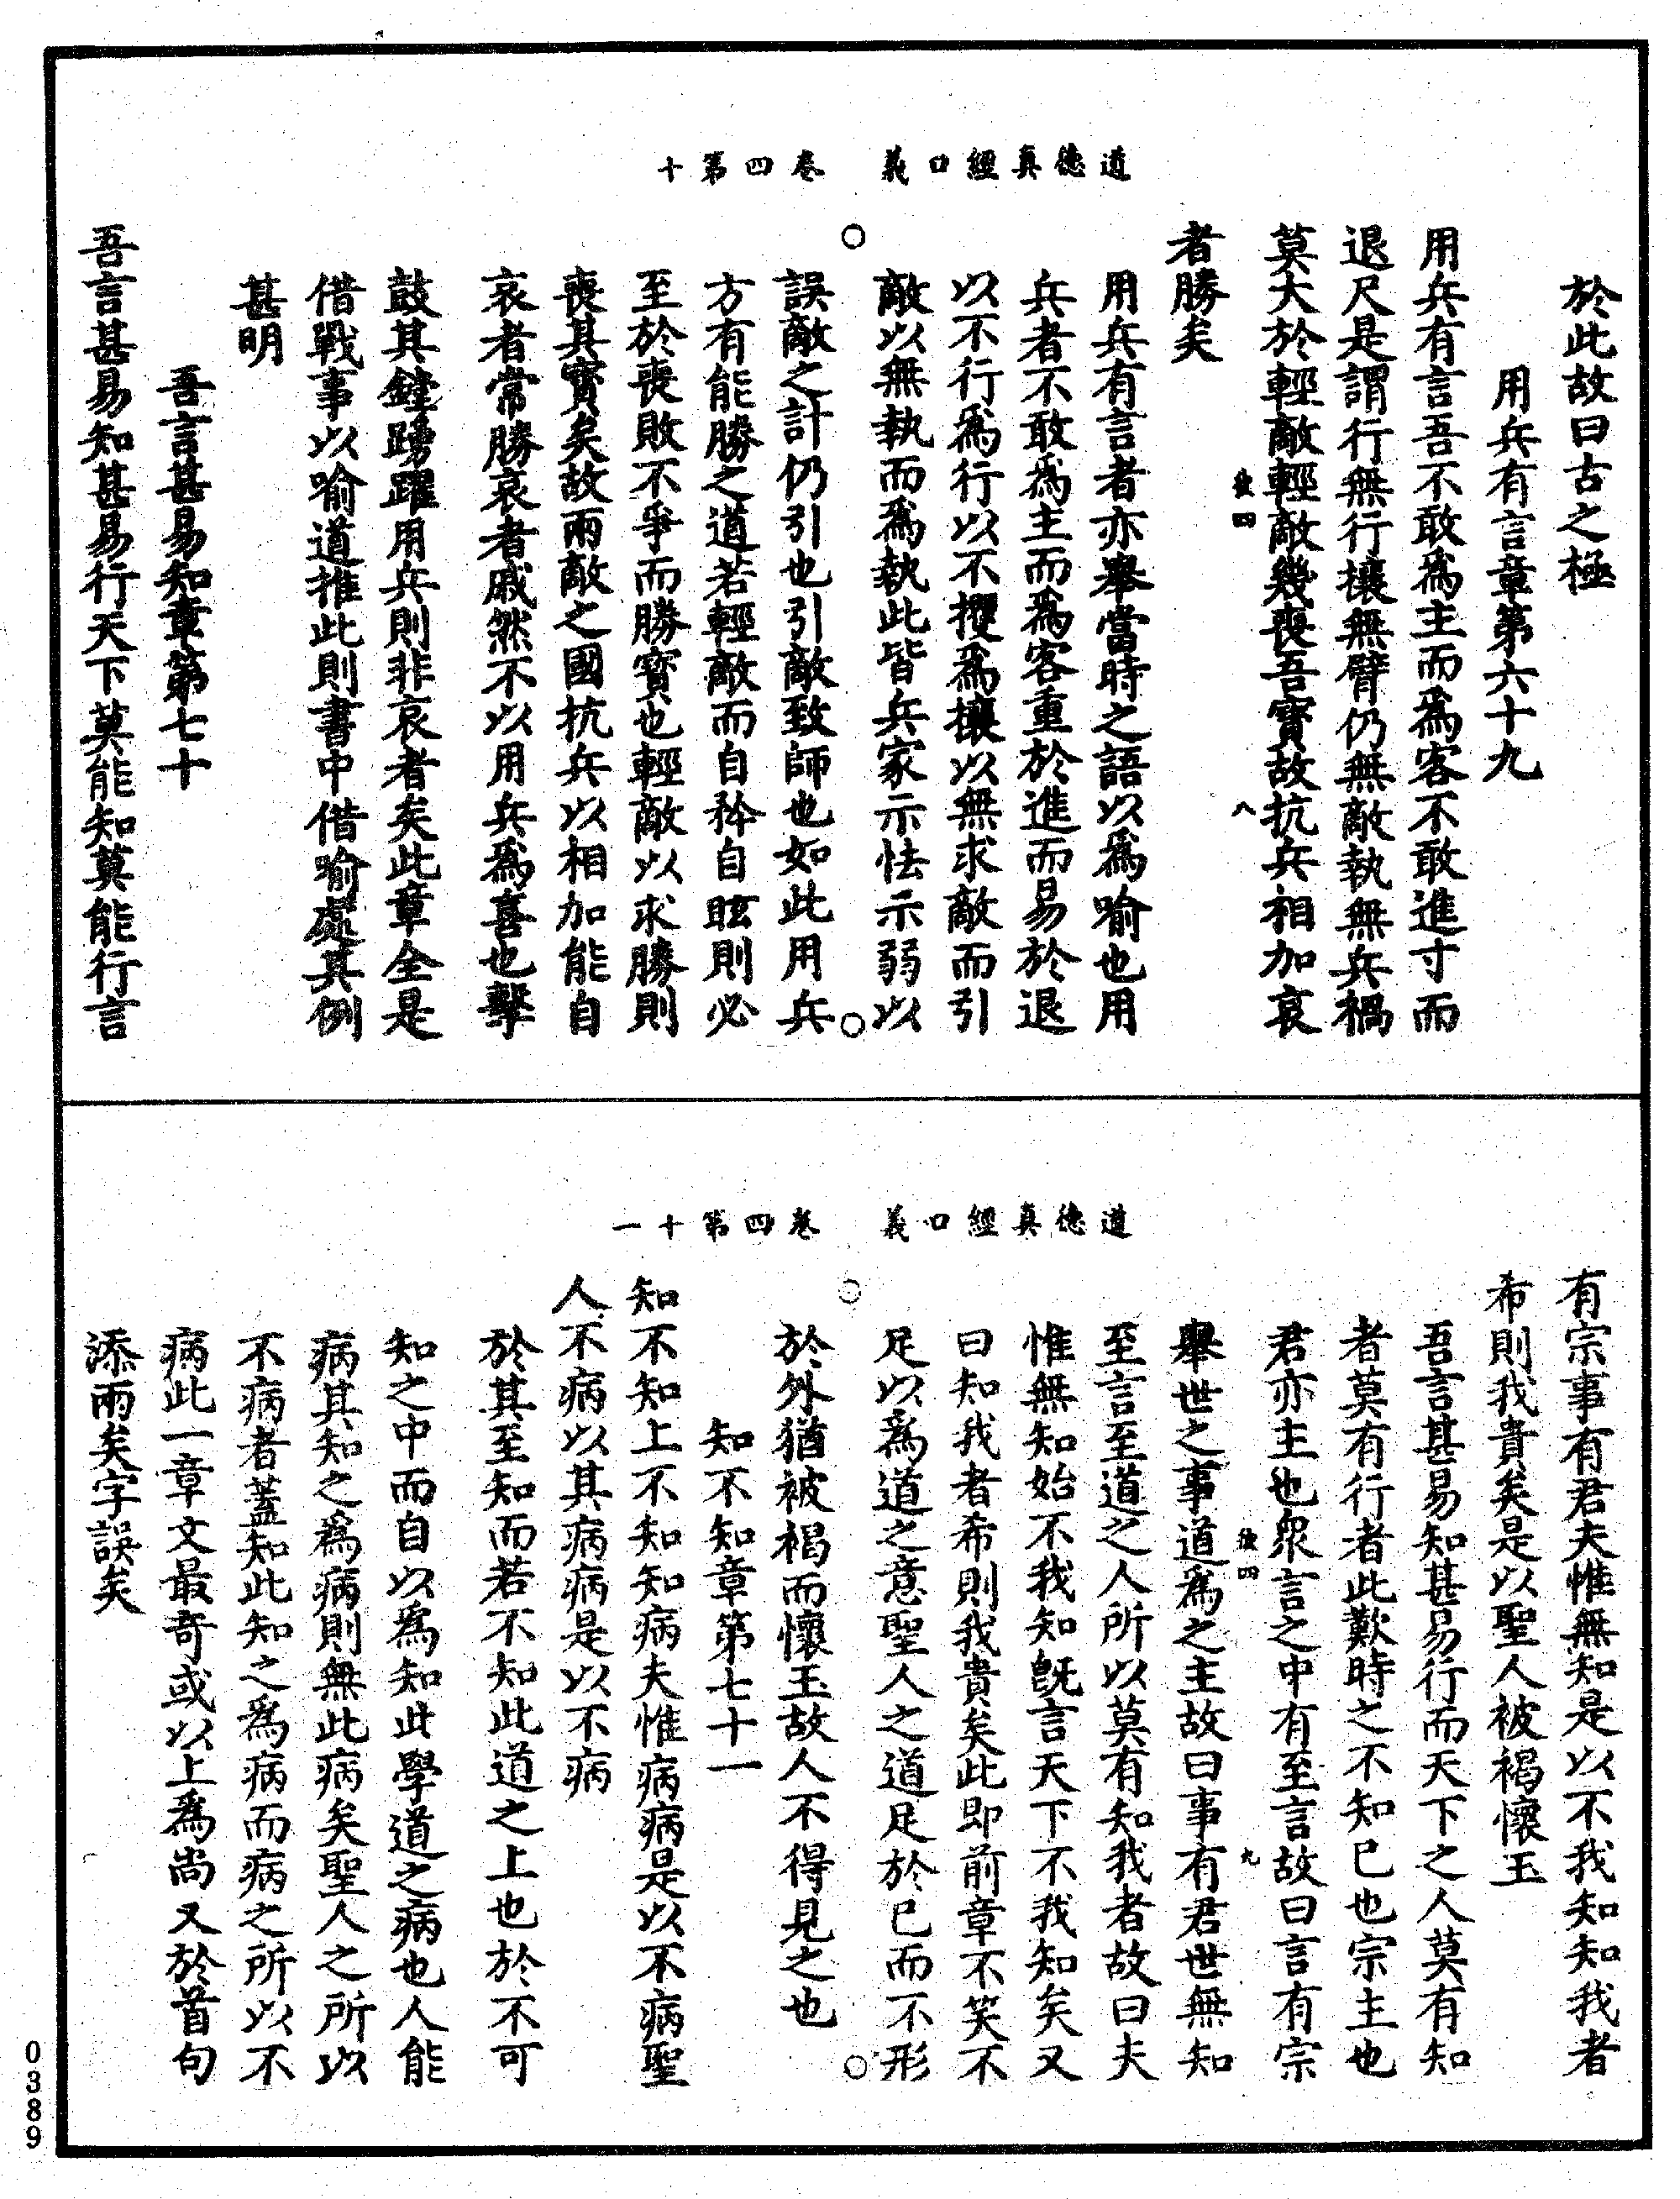 道德真經口義　卷四第十
於此故曰古之極
用兵有言章第六十九
用兵有言吾不敢為主而為客不敢進寸而
退尺是謂行無行攘無臂仍無敵執無兵禍
莫大於輕敵輕敵幾喪吾寶故抗兵相加哀
彼四　八
者勝矣
用兵有言者亦舉當時之語以為喻也用
兵者不敢為主而為客重於進而易於退
以不行為行以不攖為攘以無求敵而引
敵以無執而為執此皆兵家示怯示弱以
誤敵之計仍引也引敵致師也如此用兵
方有能勝之道若輕敵而自矜自眩則必
至於喪敗不爭而勝寶也輕敵以求勝則
喪其寶矣故兩敵之國抗兵以相加能自
哀者常勝哀者戚然不以用兵為喜也擊
鼓其鏜踴躍用兵則非哀者矣此章全是
借戰事以喻道推此則書中借喻處其例
甚明
吾言甚易知章第七十
吾言甚易知甚易行天下莫能知莫能行言
道德真經口義　卷四第十一
有宗事有君夫惟無知是以不我知知我者
希則我貴矣是以聖人被褐懷玉
吾言甚易知甚易行而天下之人莫有知
者莫有行者此歎時之不知已也宗主也
君亦主也眾言之中有至言故曰言有宗
彼四　九
舉世之事道為之主故曰事有君世無知
至言至道之人所以莫有知我者故曰夫
惟無知始不我知既言天下不我知矣又
曰知我者希則我貴矣此即前章不笑不
足以為道之意聖人之道足於已而不形
於外猶被褐而懷玉故人不得見之也
知不知章第七十一
知不知上不知知病夫惟病病是以不病聖
人不病以其病病是以不病
於其至知而若不知此道之上也於不可
知之中而自以為知此學道之病也人能
病其知之為病則無此病矣聖人之所以
不病者蓋知此知之為病而病之所以不
病此一章文最奇或以上為尚又於首句
添兩矣字誤矣
0389